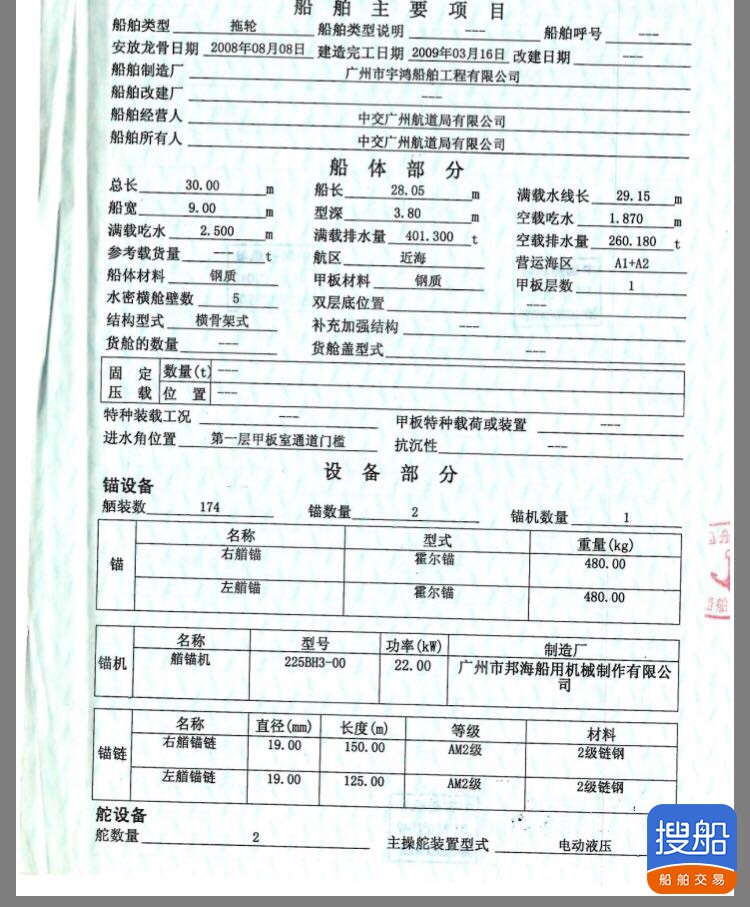 船舶主要项目
船舶类型 拖轮 船舶类型说明 --- 船舶呼号 ---
安放龙骨日期 2008年08月08日 建造完工日期 2009年03月16日 改建日期 ---
船舶制造厂 广州市宇鸿船舶工程有限公司
船舶改建厂 ---
船舶经营人 中交广州航道局有限公司
船舶所有人 中交广州航道局有限公司
船体部分
总长 30.00 m 船长 28.05 m 满载水线长 29.15 m
船宽 9.00 m 型深 3.80 m 空载吃水 1.870 m
满载吃水 2.500 m 满载排水量 401.300 t 空载排水量 260.180 t
参考载货量 --- t 航区 近海 营运海区 A1+A2
船体材料 钢质 甲板材料 钢质 甲板层数 1
水密横舱壁数 5 双层底位置 ---
结构型式 横骨架式 补充加强结构 ---
货舱的数量 --- 货舱盖型式 ---
固定 数量(t) ---
压载 位置 ---
特种装载工况 --- 甲板特种载荷或装置 ---
进水角位置 第一层甲板室通道门槛 抗沉性 ---
设备部分
锚设备
舾装数 174 锚数量 2 锚机数量 1
锚 名称 型式 重量(kg)
右艏锚 霍尔锚 480.00
左艏锚 霍尔锚 480.00
锚机 名称 型号 功率(kW) 制造厂
艏锚机 225BH3-00 22.00 广州市邦海船用机械制作有限公
司
锚链 名称 直径(mm) 长度(m) 等级 材料
右艏锚链 19.00 150.00 AM2级 2级链钢
左艏锚链 19.00 125.00 AM2级 2级链钢
舵设备
舵数量 2 主操舵装置型式 电动液压
搜船
船舶交易